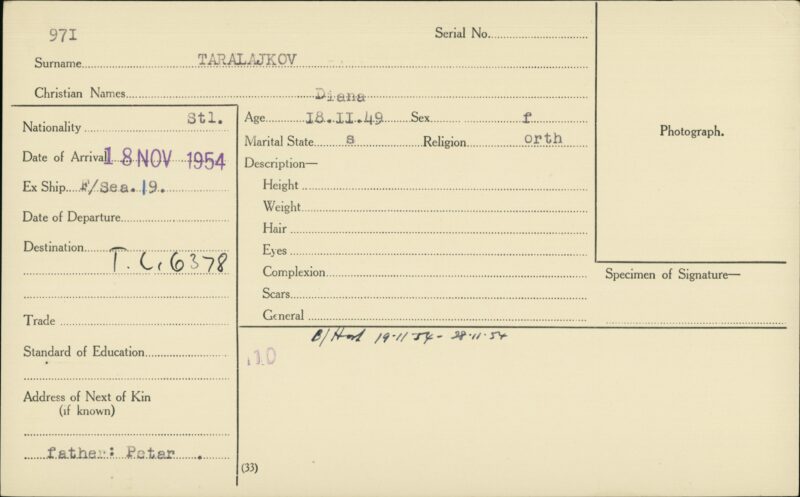 97I
Serial No.
Surname TARALAJKOV
Christian Names Diana
Nationality Stl.
Date of Arrival 18 NOV 1954
Ex Ship F/Sea. 19.
Date of Departure
Destination T.C. 6378
Trade
Standard of Education
Address of Next of Kin
(if known)
father: Petar .
Age 18.II.49 Sex f
Marital State s Religion orth
Description—
Height
Weight
Hair
Eyes
Complexion
Scars
General
19.11.54 - 28.11.54
10
(33)
Photograph.
Specimen of Signature—